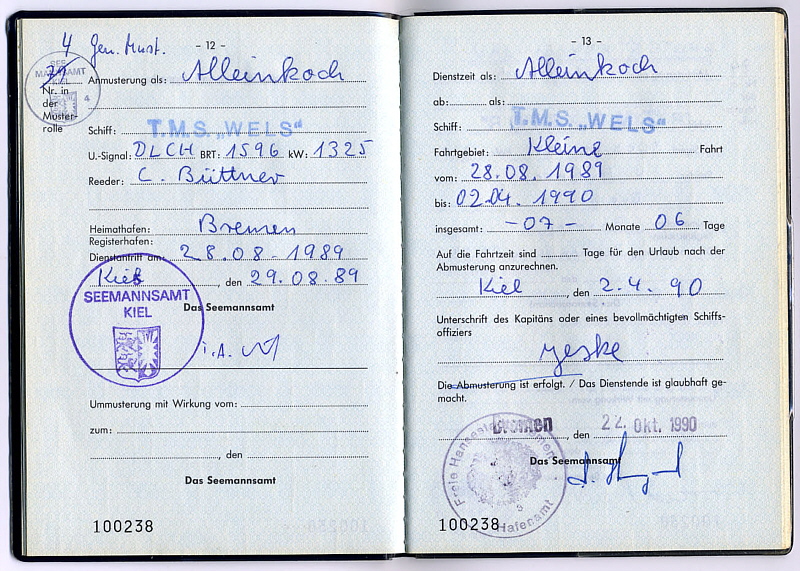 4 Gen. Must.
- 12 -
SEE
MANNSAMT
KIEL
4
Nr. in
der
Muster-
rolle
Anmusterung als: Alleinkoch
Schiff: T.M.S. „WELS"
U.-Signal: DLCH BRT: 1596 kW: 1325
Reeder: C. Büttner
Heimathafen: Bremen
Registerhafen:
Dienstantritt am: 28.08.1989
Kiel, den 29.08.89
Das Seemannsamt
SEEMANNSAMT
KIEL
i.A.
Ummusterung mit Wirkung vom:
zum:
, den
Das Seemannsamt
100238
- 13 -
Dienstzeit als: Alleinkoch
ab: als:
Schiff: T.M.S. „WELS"
Fahrtgebiet: Kleine Fahrt
vom: 28.08.1989
bis: 02.04.1990
insgesamt: -07- Monate 06 Tage
Auf die Fahrtzeit sind Tage für den Urlaub nach der
Abmusterung anzurechnen.
Kiel, den 2.4.90
Unterschrift des Kapitäns oder eines bevollmächtigten Schiffs-
offiziers
Jeske
Die Abmusterung ist erfolgt. / Das Dienstende ist glaubhaft ge-
macht.
Bremen, den 22. Okt. 1990
Das Seemannsamt
Freie Hansestadt Bremen
Hafenamt
100238